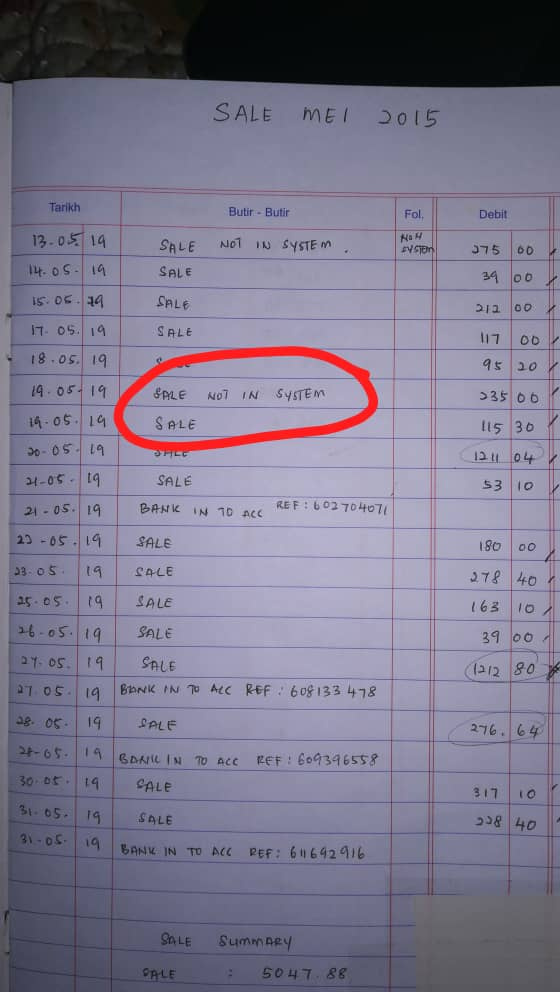 SALE MEI 2015
Tarikh Butir - Butir Fol. Debit
13.05 19 SALE NOT IN SYSTEM . NOH SYSTEM 275 00
14.05. 19 SALE 39 00
15.05. 19 SALE 212 00
17.05. 19 SALE 117 00
18.05. 19 95 20
19.05. 19 SALE NOT IN SYSTEM 235 00
19.05. 19 SALE 115 30
20.05. 19 SALE 1211 04
21-05. 19 SALE 53 10
21-05. 19 BANK IN TO ACC REF : 602704071
23-05. 19 SALE 180 00
23.05. 19 SALE 278 40
25.05. 19 SALE 163 10
26.05. 19 SALE 39 00
27.05. 19 SALE 1212 80
27.05. 19 BANK IN TO ACC REF : 608133478
28. 05. 19 SALE 276. 64
28-05. 19 BANK IN TO ACC REF : 609396558
30.05. 19 SALE 317 10
31.05. 19 SALE 228 40
31.05. 19 BANK IN TO ACC REF : 611692916
SALE SUMMARY
SALE : 5047.88